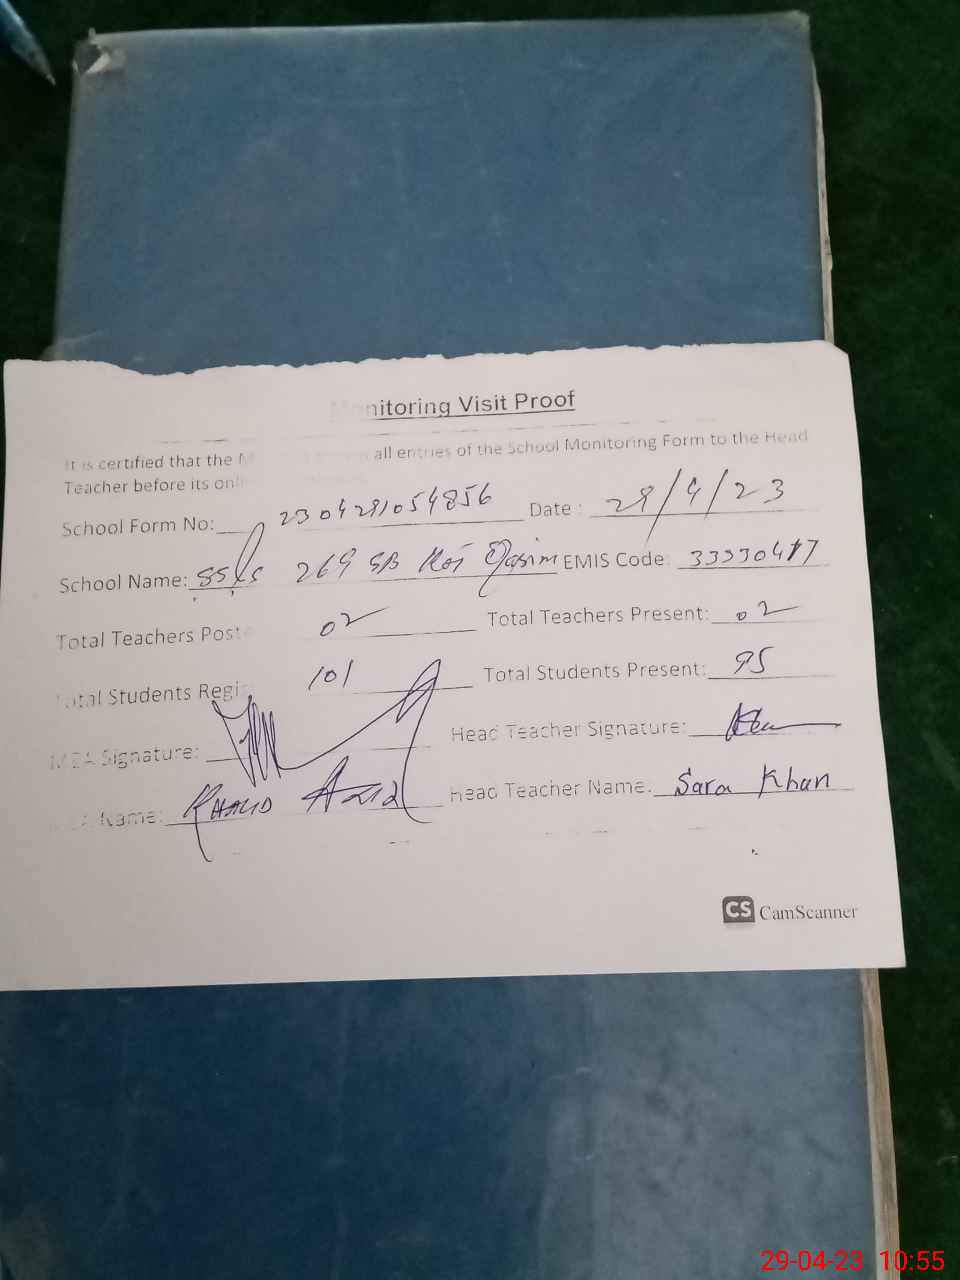 Monitoring Visit Proof
It is certified that the all entries of the School Monitoring Form to the Head
Teacher before its
School Form No: 2304291054856 Date : 29/4/23
School Name: 269 Qasim EMIS Code:
Total Teachers 02 Total Teachers Present: 02
Total Students 101 Total Students Present: 95
MEA Signature: Head Teacher Signature:
Name: KHALID AZIZ Head Teacher Name: Sara Khan
CS CamScanner
29-04-23 10:55